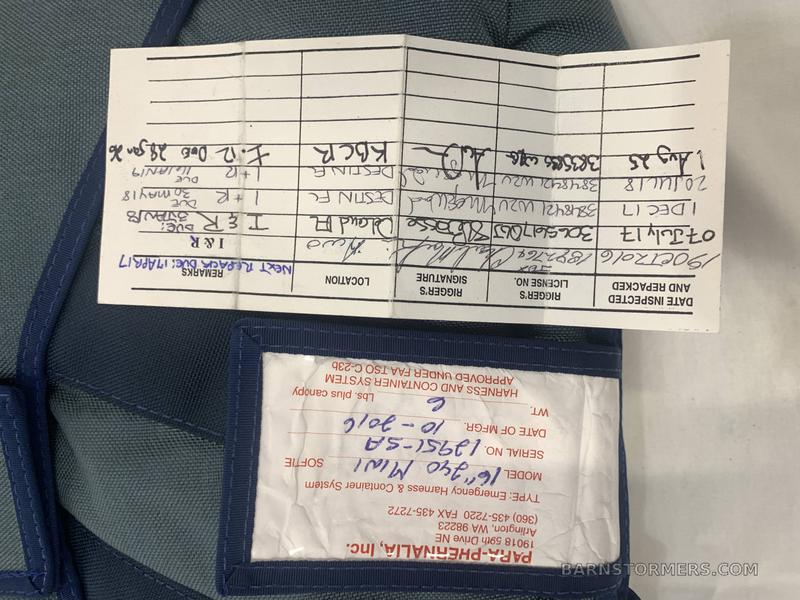 DATE INSPECTED AND REPACKED RIGGER'S LICENSE NO. RIGGER'S SIGNATURE LOCATION REMARKS
NEXT REPACK DUE: 17APR17
19OCT2016 I & R
07 July 17 Deland FL I & R DUE: 3JAN18
1 DEC 17 3848421 DESTIN FL I + R DUE 30 MAY 18
20 JUL 18 3848421 DESTIN FL I + R DUE
1 Aug 25 KBCR
PARA-PHERNALIA, Inc.
19018 59th Drive NE
Arlington, WA 98223
(360) 435-7220 FAX 435-7272
TYPE: Emergency Harness & Container System
MODEL 16" 240 MINI SOFTIE
SERIAL NO. 12951-SA
DATE OF MFGR. 10-2016
WT. 6 Lbs. plus canopy
HARNESS AND CONTAINER SYSTEM
APPROVED UNDER FAA TSO C-23b
BARNSTORMERS.COM